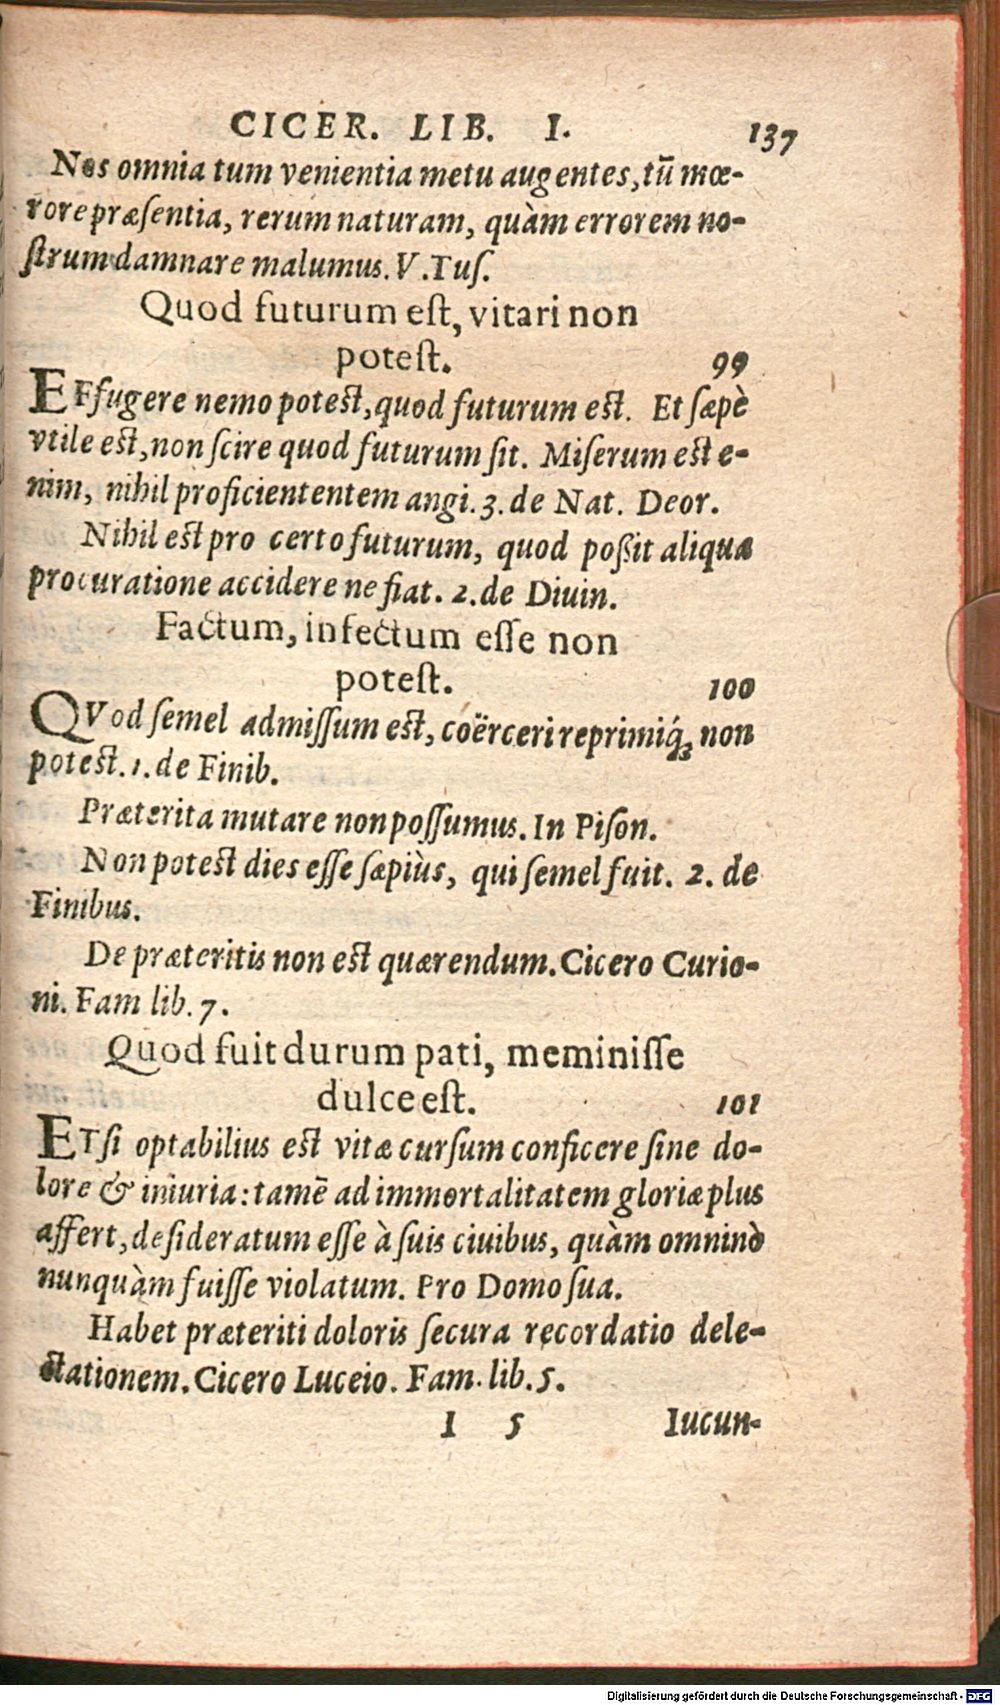 CICER. LIB. I. 137
Nos omnia tum venientia metu augentes, tū mœ-
rore præſentia, rerum naturam, quàm errorem no-
ſtrum damnare malumus. V. Tuſ.
Quod futurum eſt, vitari non
poteſt. 99
EFfugere nemo poteſt, quod futurum eſt. Et ſæpè
vtile eſt, non ſcire quod futurum ſit. Miſerum eſt e-
nim, nihil proficientem tem angi. 3. de Nat. Deor.
Nihil eſt pro certo futurum, quod poßit aliqua
procuratione accidere ne fiat. 2. de Diuin.
Factum, infectum eſſe non
poteſt. 100
QVod ſemel admiſſum eſt, coërceri reprimiq́; non
poteſt. 1. de Finib.
Præterita mutare non poſſumus. In Piſon.
Non poteſt dies eſſe ſæpiùs, qui ſemel fuit. 2. de
Finibus.
De præteritis non eſt quærendum. Cicero Curio-
ni. Fam lib. 7.
Quod fuit durum pati, meminiſſe
dulce eſt. 101
ETſi optabilius eſt vitæ curſum conficere ſine do-
lore & iniuria: tamē ad immortalitatem gloriæ plus
affert, deſideratum eſſe à ſuis ciuibus, quàm omninò
nunquàm fuiſſe violatum. Pro Domo ſua.
Habet præteriti doloris ſecura recordatio dele-
ctationem. Cicero Luceio. Fam. lib. 5.
I 5 Iucun-
Digitalisierung gefördert durch die Deutsche Forschungsgemeinschaft - DFG